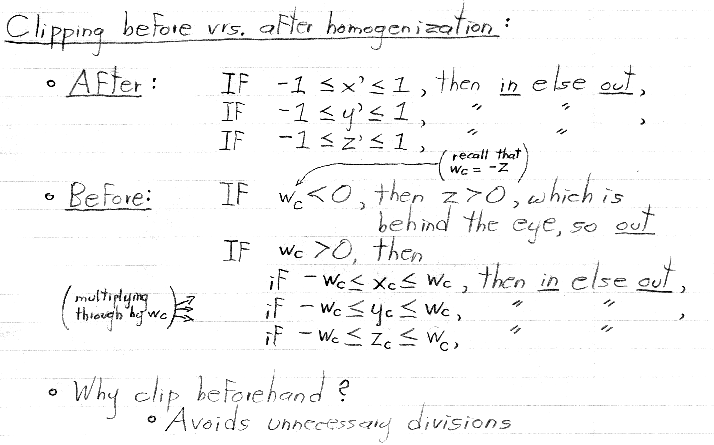 Clipping before vrs. after homogenization:
• After: IF -1 ≤ x' ≤ 1, then in else out,
IF -1 ≤ y' ≤ 1, " " ,
IF -1 ≤ z' ≤ 1, " "
(recall that
wc = -z)
• Before: IF wc < 0, then z > 0, which is
behind the eye, so out
IF wc > 0, then
if -wc ≤ xc ≤ wc, then in else out,
(multiplying
through by wc)
if -wc ≤ yc ≤ wc, " " ,
if -wc ≤ zc ≤ wc, " "
• Why clip beforehand?
• Avoids unnecessary divisions